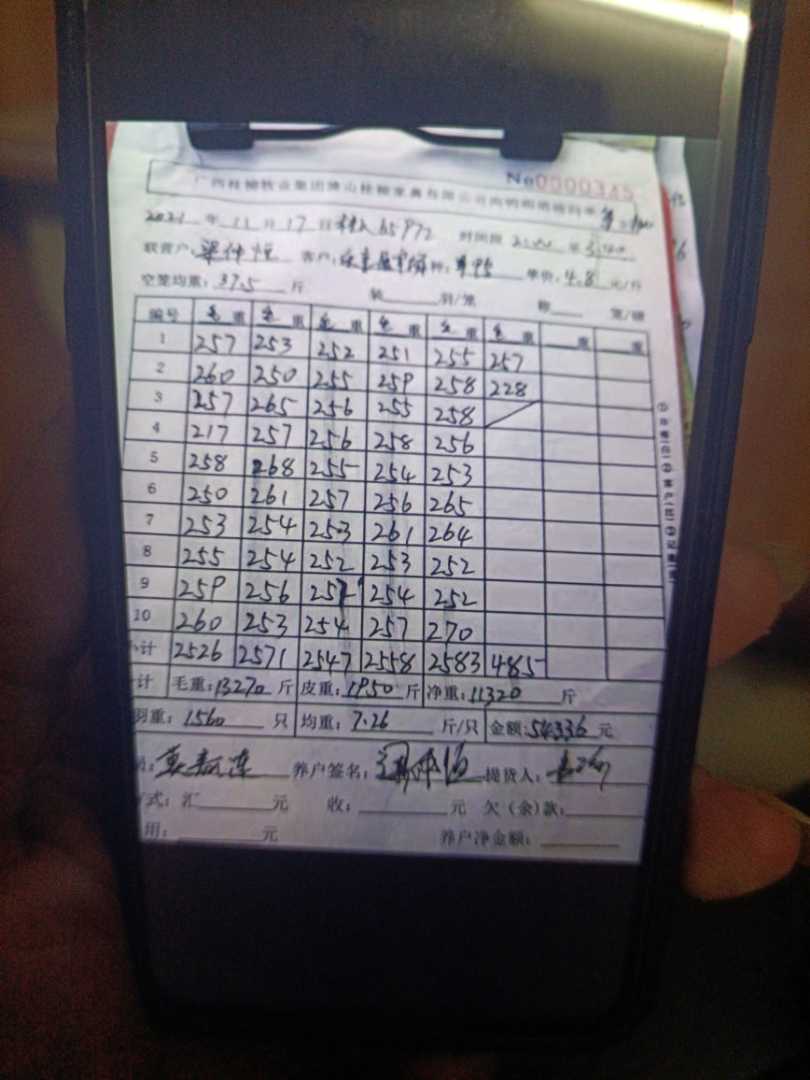 No0000345
2021 年 11 月 17 日
时间段
联营户: 客户: 种: 单价: 4.8 元/斤
空笼均重: 37.5 斤 装 羽/笼 称 笼/磅
编号 毛 重 毛 重 毛 重 毛 重 毛 重 毛 重 重 重
1 257 253 252 251 255 257
2 260 250 255 259 258 228
3 257 265 256 255 258
4 217 257 256 258 256
5 258 268 255 254 253
6 250 261 257 256 265
7 253 254 253 261 264
8 255 254 252 253 252
9 259 256 257 254 252
10 260 253 254 257 270
小计 2526 2571 2547 2558 2583 485
计 毛重: 13270 斤 皮重: 1950 斤 净重: 11320 斤
羽重: 1560 只 均重: 7.26 斤/只 金额: 54336 元
养户签名: 提货人:
式: 汇 元 收: 元 欠(余)款:
用: 元 养户净金额: